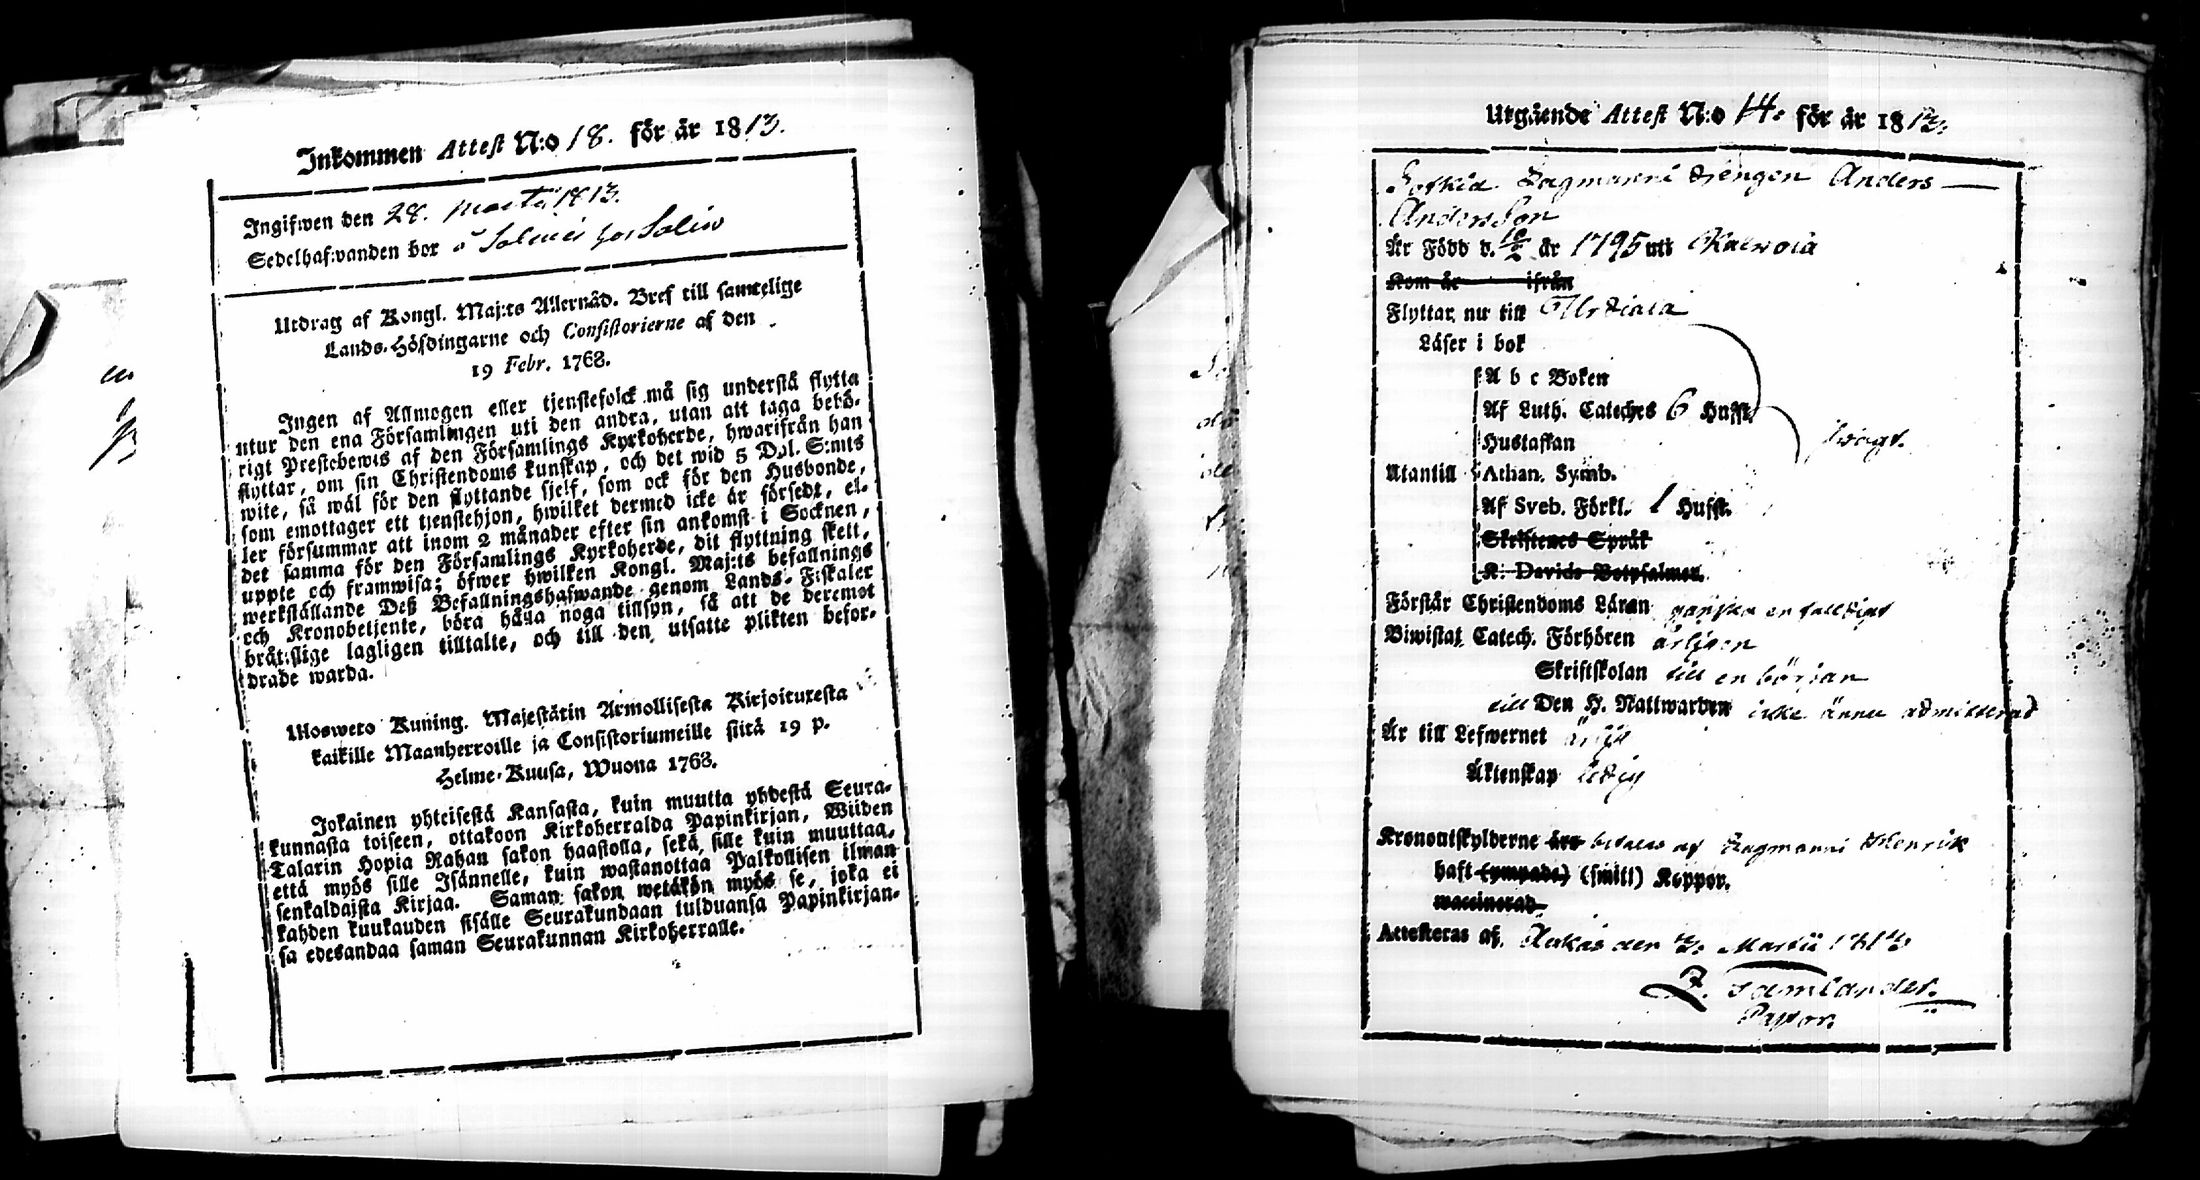 Inkommen Attest N:o 18. för år 1813.
Ingifwen den 28. Martii 1813.
Sedelhafwanden bor å
Utdrag af Kongl. Maj:ts Allernåd. Bref till samtelige
Lands-Höfdingarne och Consistorierne af den
19 Febr. 1768.
Ingen af Allmogen eller tjenstefolck må sig understå flytta
utur den ena Församlingen uti den andra, utan att taga behö-
rigt Prestebewis af den Församlings Kyrkoherde, hwarifrån han
flyttar, om sin Christendoms kunskap, och det wid 5 Dal. S:mts
wite, så wäl för den flyttande sjelf, som ock för den Husbonde,
som emottager ett tjenstehjon, hwilket dermed icke är försedt, el-
ler försummar att inom 2 månader efter sin ankomst i Socknen,
det samma för den Församlings Kyrkoherde, dit flyttning skett,
uppte och framwisa; öfwer hwilken Kongl. Maj:ts befallnings
werkställande Deß Befallningshafwande genom Lands-Fiskaler
och Kronobetjente, böra hålla noga tillsyn, så att de deremot
brätslige lagligen tilltalte, och till den utsatte plikten befor-
drade warda.
Ulosweto Kuning. Majestätin Armollisesta Kirjoituxesta
kaikille Maanherroille ja Consistoriumeille siitä 19 p.
Helme-Kuusa, Wuona 1768.
Jokainen yhteisestä Kansasta, kuin muutta yhdestä Seura-
kunnasta toiseen, ottakoon Kirkoherralda Papinkirjan, Wiiden
Talarin Hopia Rahan sakon haastolla, sekä sille kuin muuttaa,
että myös sille Isännelle, kuin wastanottaa Palkollisen ilman
senkaldaista Kirjaa. Saman sakon wetäkön myös se, joka ei
kahden kuukauden sisälle Seurakundaan tulduansa Papinkirjan-
sa edesandaa saman Seurakunnan Kirkoherralle.
Utgående Attest N:o 14. för år 1813.
Zagmanni drengen Anders
Andersson
Är Född d. år 1795 uti Kalwola
Kom år ifrån
Flyttar nu till Urdiala
Läser i bok
A b c Boken
Af Luth. Cateches 6 Hufst.
Hustaflan
swagt.
Utantill Athan. Symb.
Af Sveb. Förkl. 1 Hufst.
Skriftenes Språk
K. Davids Botpsalmer.
Förstår Christendoms Läran ganska enfalldigt
Biwistat Catech. Förhören årligen
Skriftskolan till en början
till Den H. Nattwarden icke ännu admitterad
Är till Lefwernet ärlig
Äktenskap ledig
Kronoutskylderne äro betales af Zagmanni Henrik
haft (ympade) (smitt) Koppor.
waccinerad
Attesteras af, Akkas den 3. Martii 1813
Z. Tamlander.
Pastor.